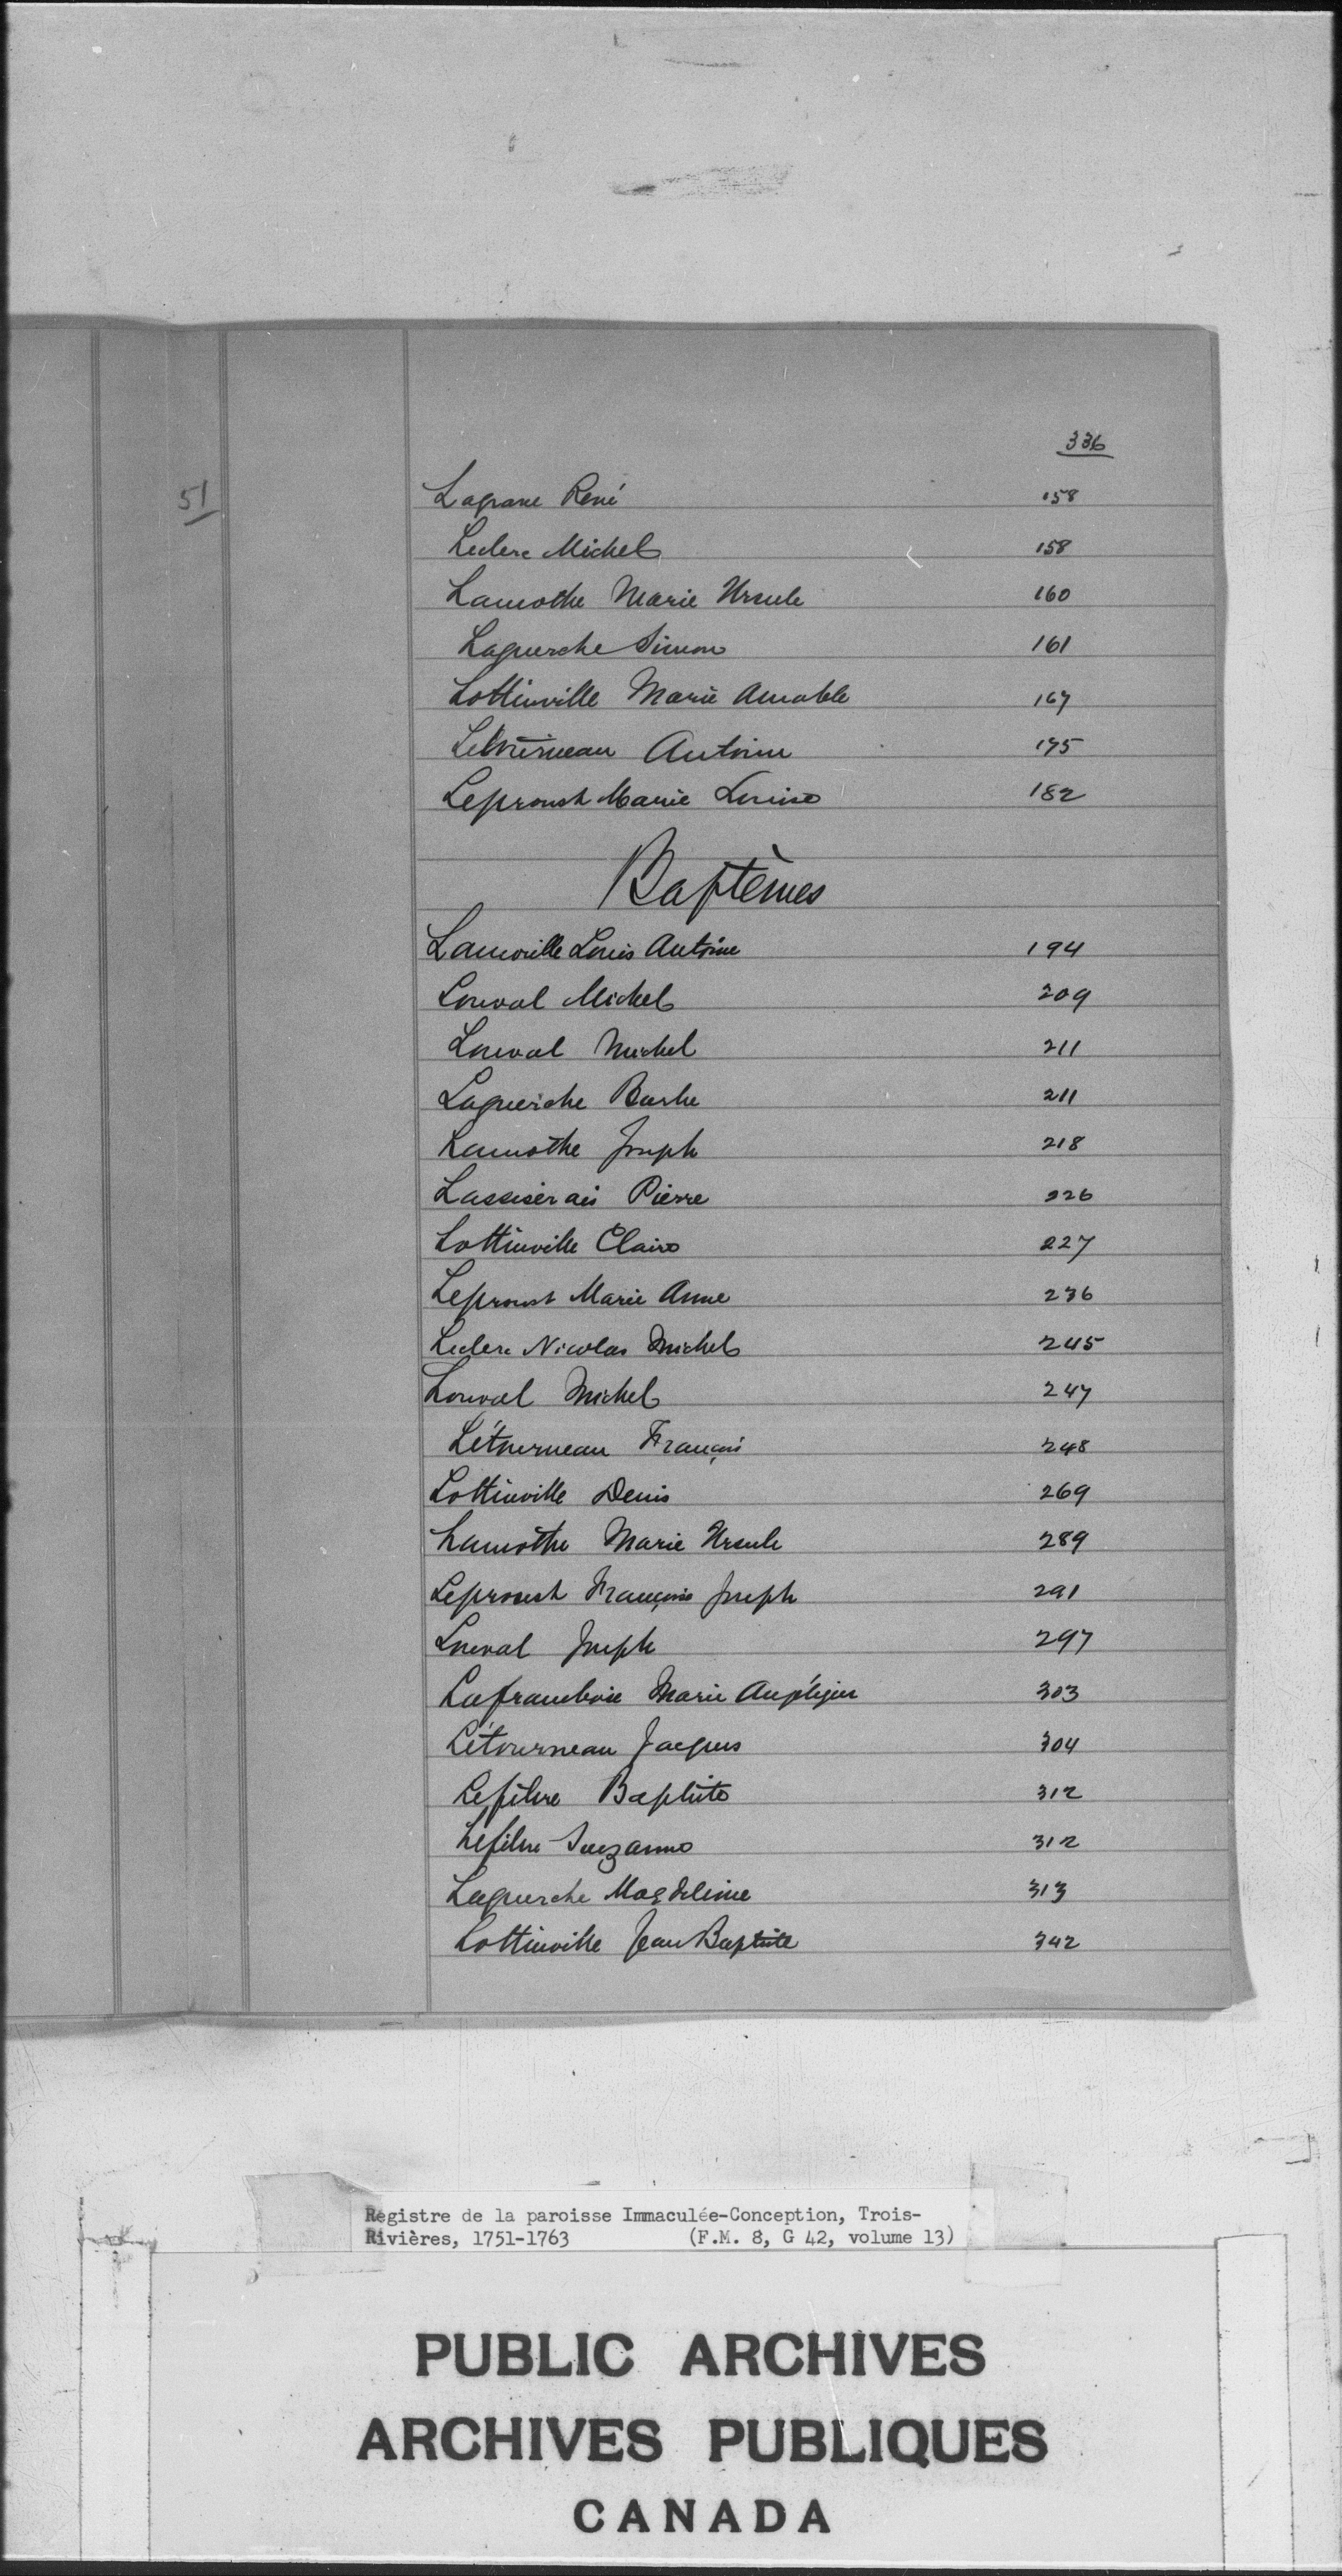 336
51
Lagrave René 158
Leclerc Michel 158
Lamothe Marie Ursule 160
Laguerche Simon 161
Lottinville Marie Amable 167
Letourneau Antoine 175
Leproust Marie Louise 182
Baptêmes
Louis Antoine 194
Louval Michel 209
Louval Michel 211
Laguerche 211
Lamothe Joseph 218
Lassiserais Pierre 226
Lottinville Claire 227
Leproust Marie Anne 236
Leclerc Nicolas Michel 245
Louval Michel 247
Létourneau François 248
Lottinville Denis 269
Lamothe Marie Ursule 289
Leproust François Joseph 291
Louval Joseph 297
Laframboise Marie 303
Létourneau Jacques 304
Lefibre Baptiste 312
Lefibre Suzanne 312
Laguerche Magdeleine 313
Lottinville Jean Baptiste 342
Registre de la paroisse Immaculée-Conception, Trois-
Rivières, 1751-1763 (F.M. 8, G 42, volume 13)
PUBLIC ARCHIVES
ARCHIVES PUBLIQUES
CANADA